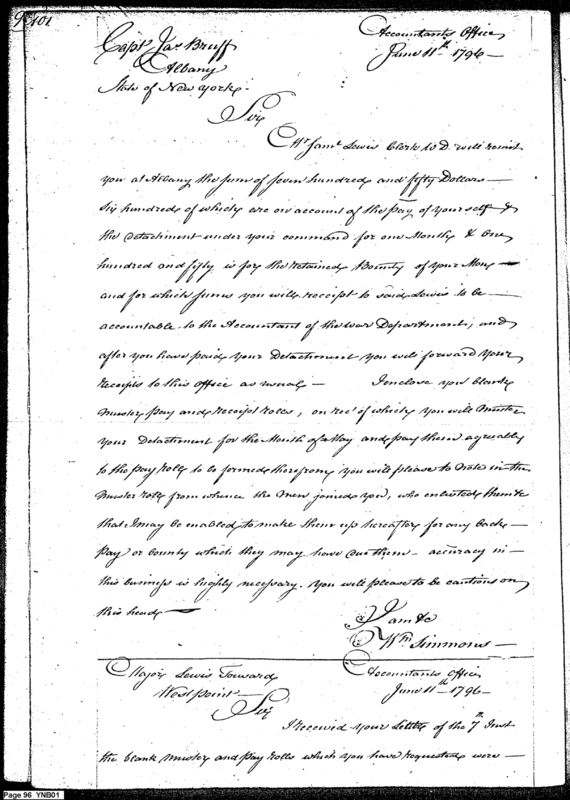 101
Accountants Office
June 11th 1796
Capt Jas Bruff
Albany
State of New York
Sir
Mr Saml Lewis Clerk W D. will remit
you at Albany the sum of seven hundred and fifty Dollars
six hundred of which are on account of the pay of yourself &
the detachment under your command for one Month, & One
hundred and fifty is for the retained Bounty of your Men
and for which sums you will receipt to said Lewis to be
accountable to the Accountant of the War Department, and
after you have paid your Detachment you will forward your
receipts to this office as usual — I enclose you blank
muster pay and receipt rolls, on rect of which you will muster
your Detachment for the Month of May and pay them agreeably
to the pay rolls to be formed therefrom, you will please to note in the
muster rolls from whence the Men joined you, who enlisted them &c
that I may be enabled to make them up hereafter for any back
pay or bounty which they may have due them — accuracy in
this business is highly necessary. You will please to be cautious on
this head
I am &c
Wm Simmons
Major Lewis Tousard
West point
Accountants Office
June 11th 1796
Sir
I received your Letter of the 7th Inst
the blank muster and pay rolls which you have requested were
Page 96 YNB01